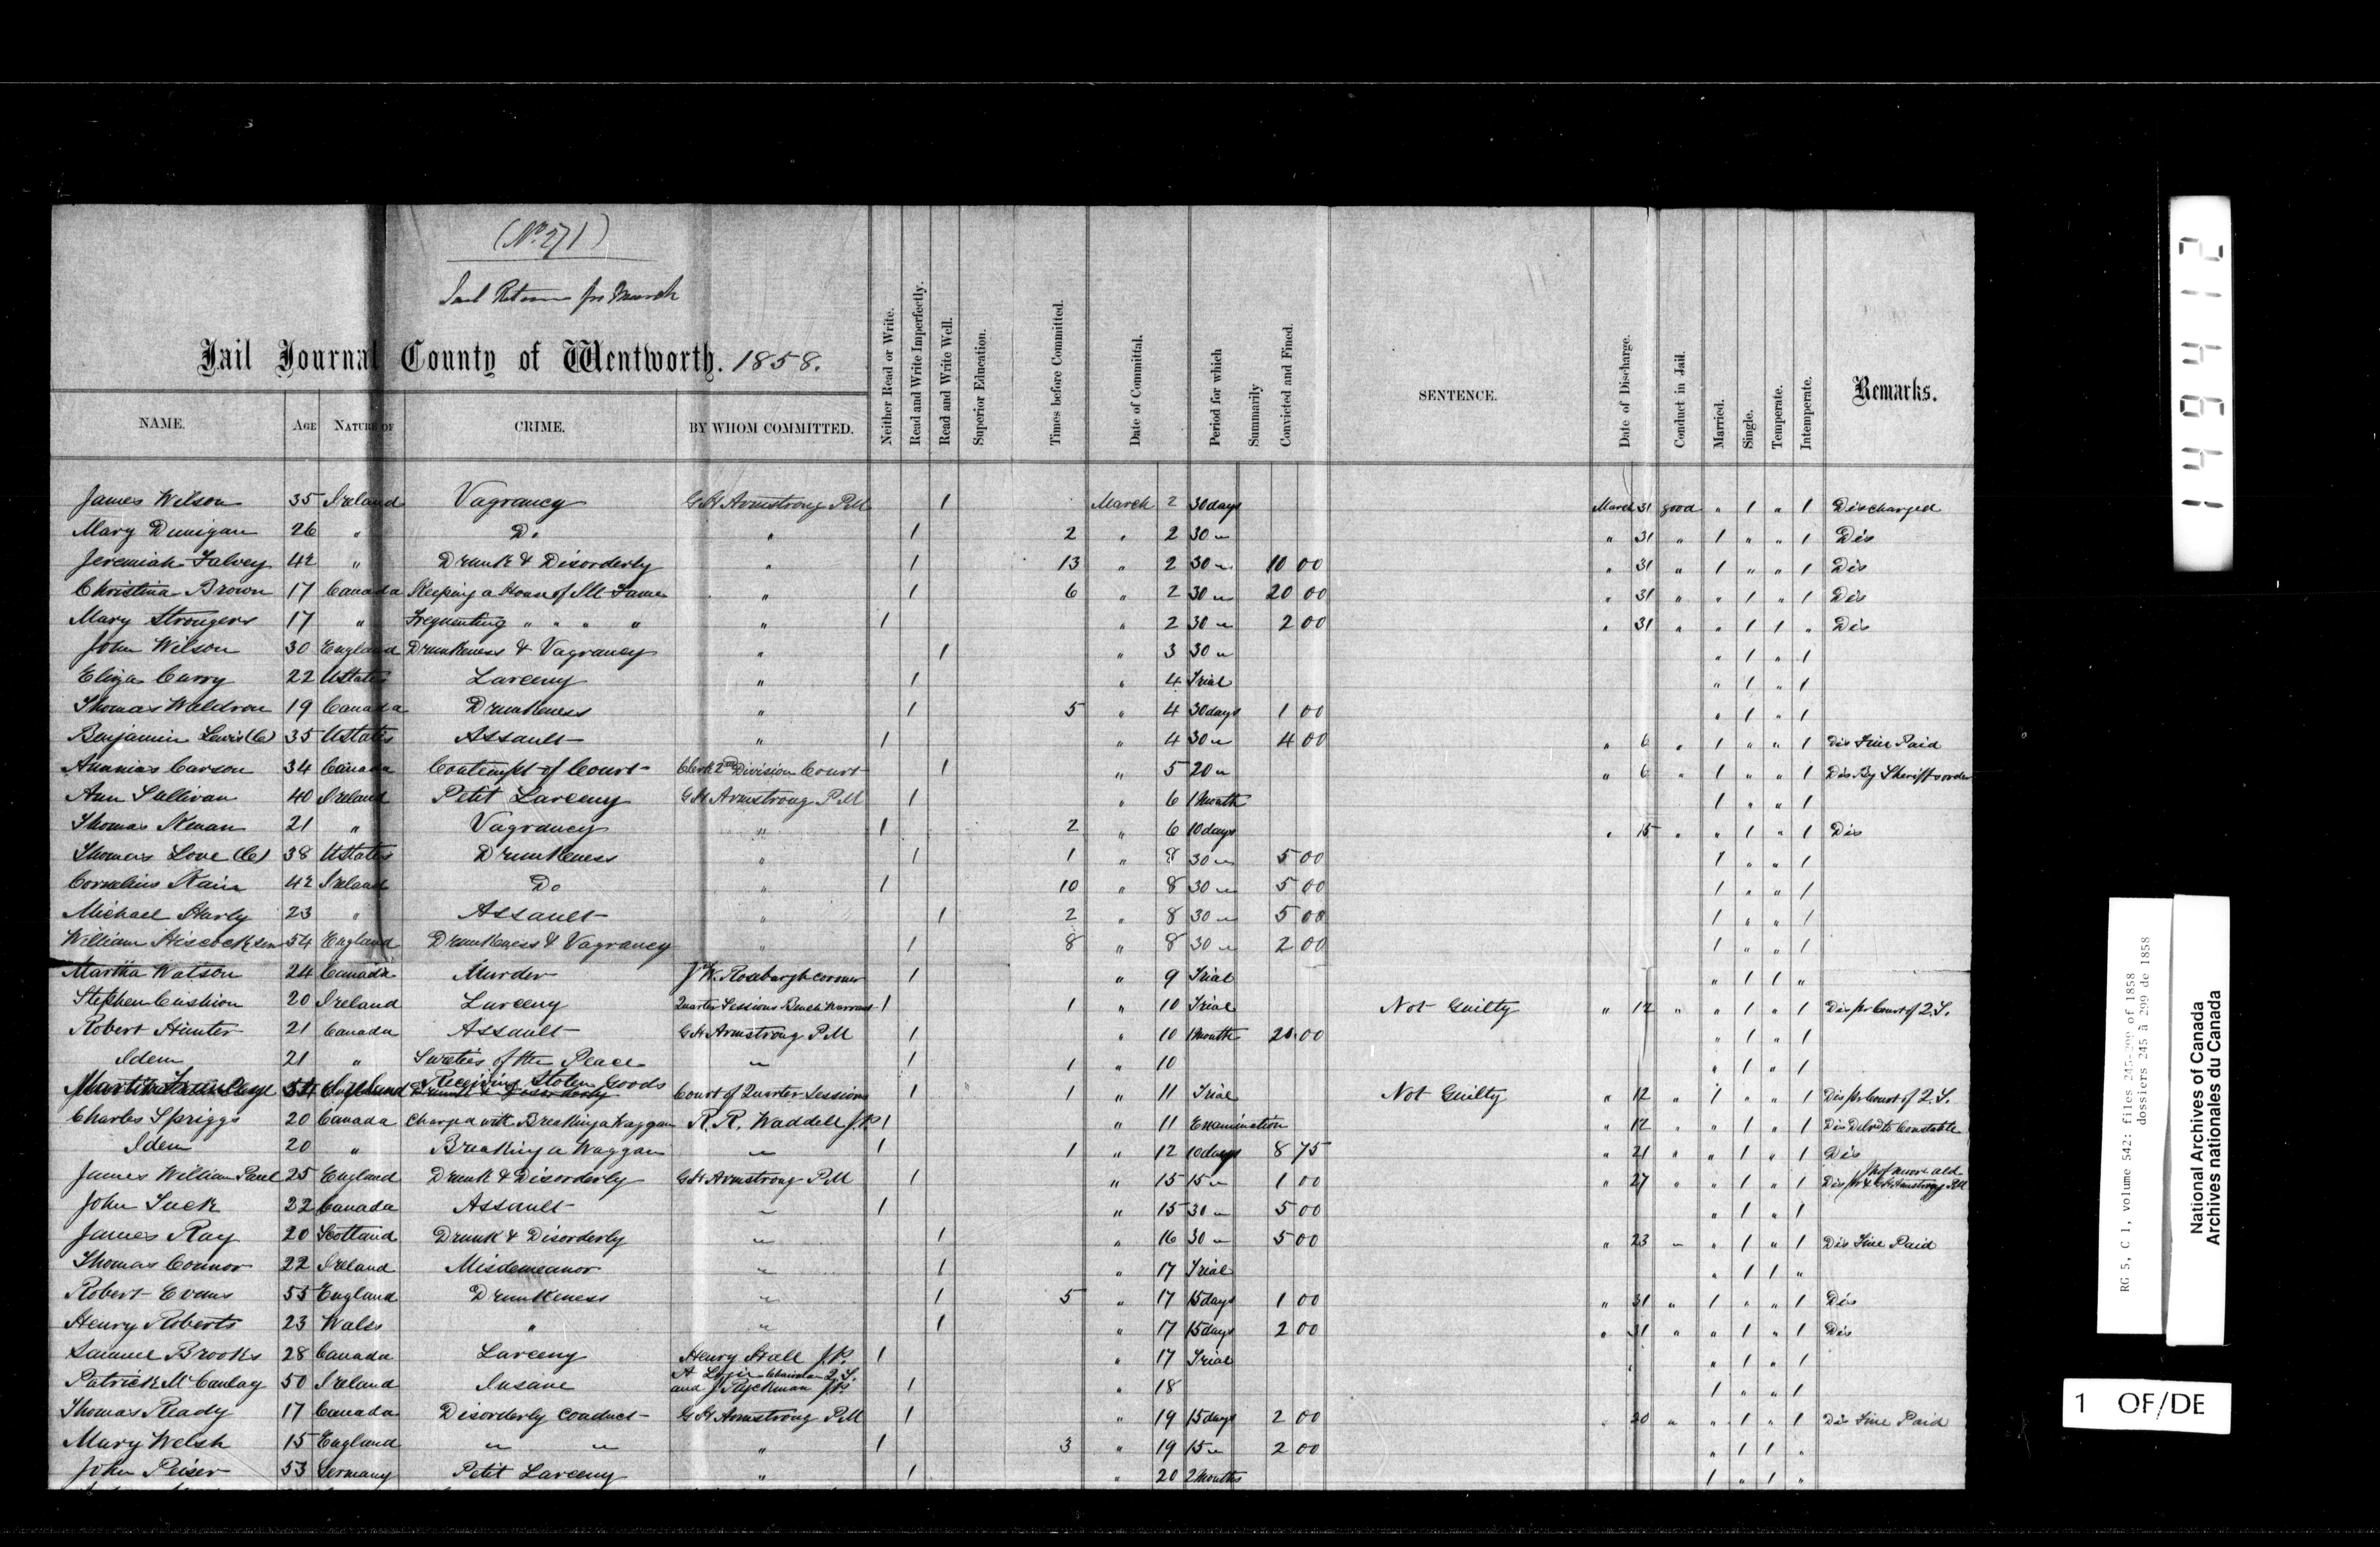 (No. 271)
Jail Return for March
Jail Journal County of Wentworth. 1858.
NAME. AGE NATURE OF CRIME. BY WHOM COMMITTED. Neither Read or Write. Read and Write Imperfectly. Read and Write Well. Superior Education. Times before Committed. Date of Committal. Period for which Summarily Convicted and Fined. SENTENCE. Date of Discharge. Conduct in Jail. Married. Single. Temperate. Intemperate. Remarks.
James Wilson 35 Ireland Vagrancy G H Armstrong P.M 1 March 2 30 days March 31 good " 1 " 1 Discharged
Mary Dunigan 26 " Do " 1 2 " 2 30 " " 31 " 1 " " 1 Dis
Jeremiah Falvey 42 " Drunk & Disorderly " 1 13 " 2 30 " 10 00 " 31 " 1 " " 1 Dis
Christina Brown 17 Canada Keeping a House of Ill Fame " 1 6 " 2 30 " 20 00 " 31 " " 1 " 1 Dis
Mary Strongers 17 " Frequenting " " " " " 1 " 2 30 " 2 00 " 31 " " 1 1 " Dis
John Wilson 30 England Drunkeness & Vagrancy " 1 " 3 30 " " 1 " 1
Eliza Carry 22 UStates Larceny " 1 " 4 Trial " 1 " 1
Thomas Weldron 19 Canada Drunkeness " 1 5 " 4 30 days 1 00 " 1 " 1
Benjamin Lewis (C) 35 UStates Assault " 1 " 4 30 " 4 00 " 6 " 1 " " 1 Dis Fine Paid
Ananias Carson 34 Canada Contempt of Court Clerk 2nd Division Court 1 " 5 20 " " 6 " 1 " " 1 Dis By Sheriffs order
Ann Sullivan 40 Ireland Petit Larceny G H Armstrong P.M 1 " 6 1 Month 1 " " 1
Thomas 21 " Vagrancy " 1 2 " 6 10 days " 15 " " 1 " 1 Dis
Thomas Love (C) 38 UStates Drunkeness " 1 1 " 8 30 " 5 00 1 " " 1
Cornelius 42 Ireland Do " 1 10 " 8 30 " 5 00 1 " " 1
Michael 23 " Assault " 1 2 " 8 30 " 5 00 1 " " 1
William Hiscock sen 54 England Drunkeness & Vagrancy " 1 8 " 8 30 " 2 00 1 " " 1
Martha Watson 24 Canada Murder J W. Roxburgh coroner 1 " 9 Trial " 1 1 "
Stephen Cushion 20 Ireland Larceny Quarter Sessions Bench Warrant 1 1 " 10 Trial Not Guilty " 12 " " 1 " 1 Dis pr Court of Q.S.
Robert Hunter 21 Canada Assault G H Armstrong P M 1 " 10 1 Month 20.00 " 1 " 1
Idem 21 " Sureties of the Peace " 1 1 " 10 " 1 " 1
Receiving Stolen Goods
Martin 54 Drunk & Disorderly Court of Quarter Sessions 1 1 " 11 Trial Not Guilty " 12 " 1 " " 1 Dis pr Court of Q.S.
Charles Spriggs 20 Canada Charged with Breaking a Waggon R. R. Waddell J.P. 1 " 11 Examination " 12 " " 1 " 1 Dis Delvd to Constable
Idem 20 " Breaking a Waggon " 1 1 " 12 10 days 8 75 " 21 " " 1 " 1 Dis
James William Paul 25 England Drunk & Disorderly G H Armstrong P.M 1 " 15 15 " 1 00 " 27 " " 1 " 1 Dis pr Moore ald & G H Armstrong P.M
John Tuck 22 Canada Assault " 1 " 15 30 " 5 00 " 1 " 1
James Ray 20 Scotland Drunk & Disorderly " 1 " 16 30 " 5 00 " 23 " " 1 " 1 Dis Fine Paid
Thomas Connor 22 Ireland Misdemeanor " 1 " 17 Trial " 1 1 "
Robert Evans 55 England Drunkeness " 1 5 " 17 15 days 1 00 " 31 " 1 " " 1 Dis
Henry Roberts 23 Wales " " 1 " 17 15 days 2 00 " 31 " " 1 " 1 Dis
Samuel Brooks 28 Canada Larceny Henry Hall J.P. 1 " 17 Trial " 1 " 1
Patrick McCaulay 50 Ireland Insane A Logie Chairman Q.S. and J Ryckman J.P. 1 " 18 1 " " 1
Thomas Ready 17 Canada Disorderly Conduct G H Armstrong P.M 1 " 19 15 days 2 00 " 20 " " 1 " 1 Dis Fine Paid
Mary Welsh 15 England " " " 1 3 " 19 15 " 2 00 " 1 1 "
John Peiser 53 Germany Petit Larceny " 1 " 20 2 Months 1 " 1 "
149412
RG 5, C 1, volume 542: files 245-299 of 1858
dossiers 245 à 299 de 1858
National Archives of Canada
Archives nationales du Canada
1 OF/DE